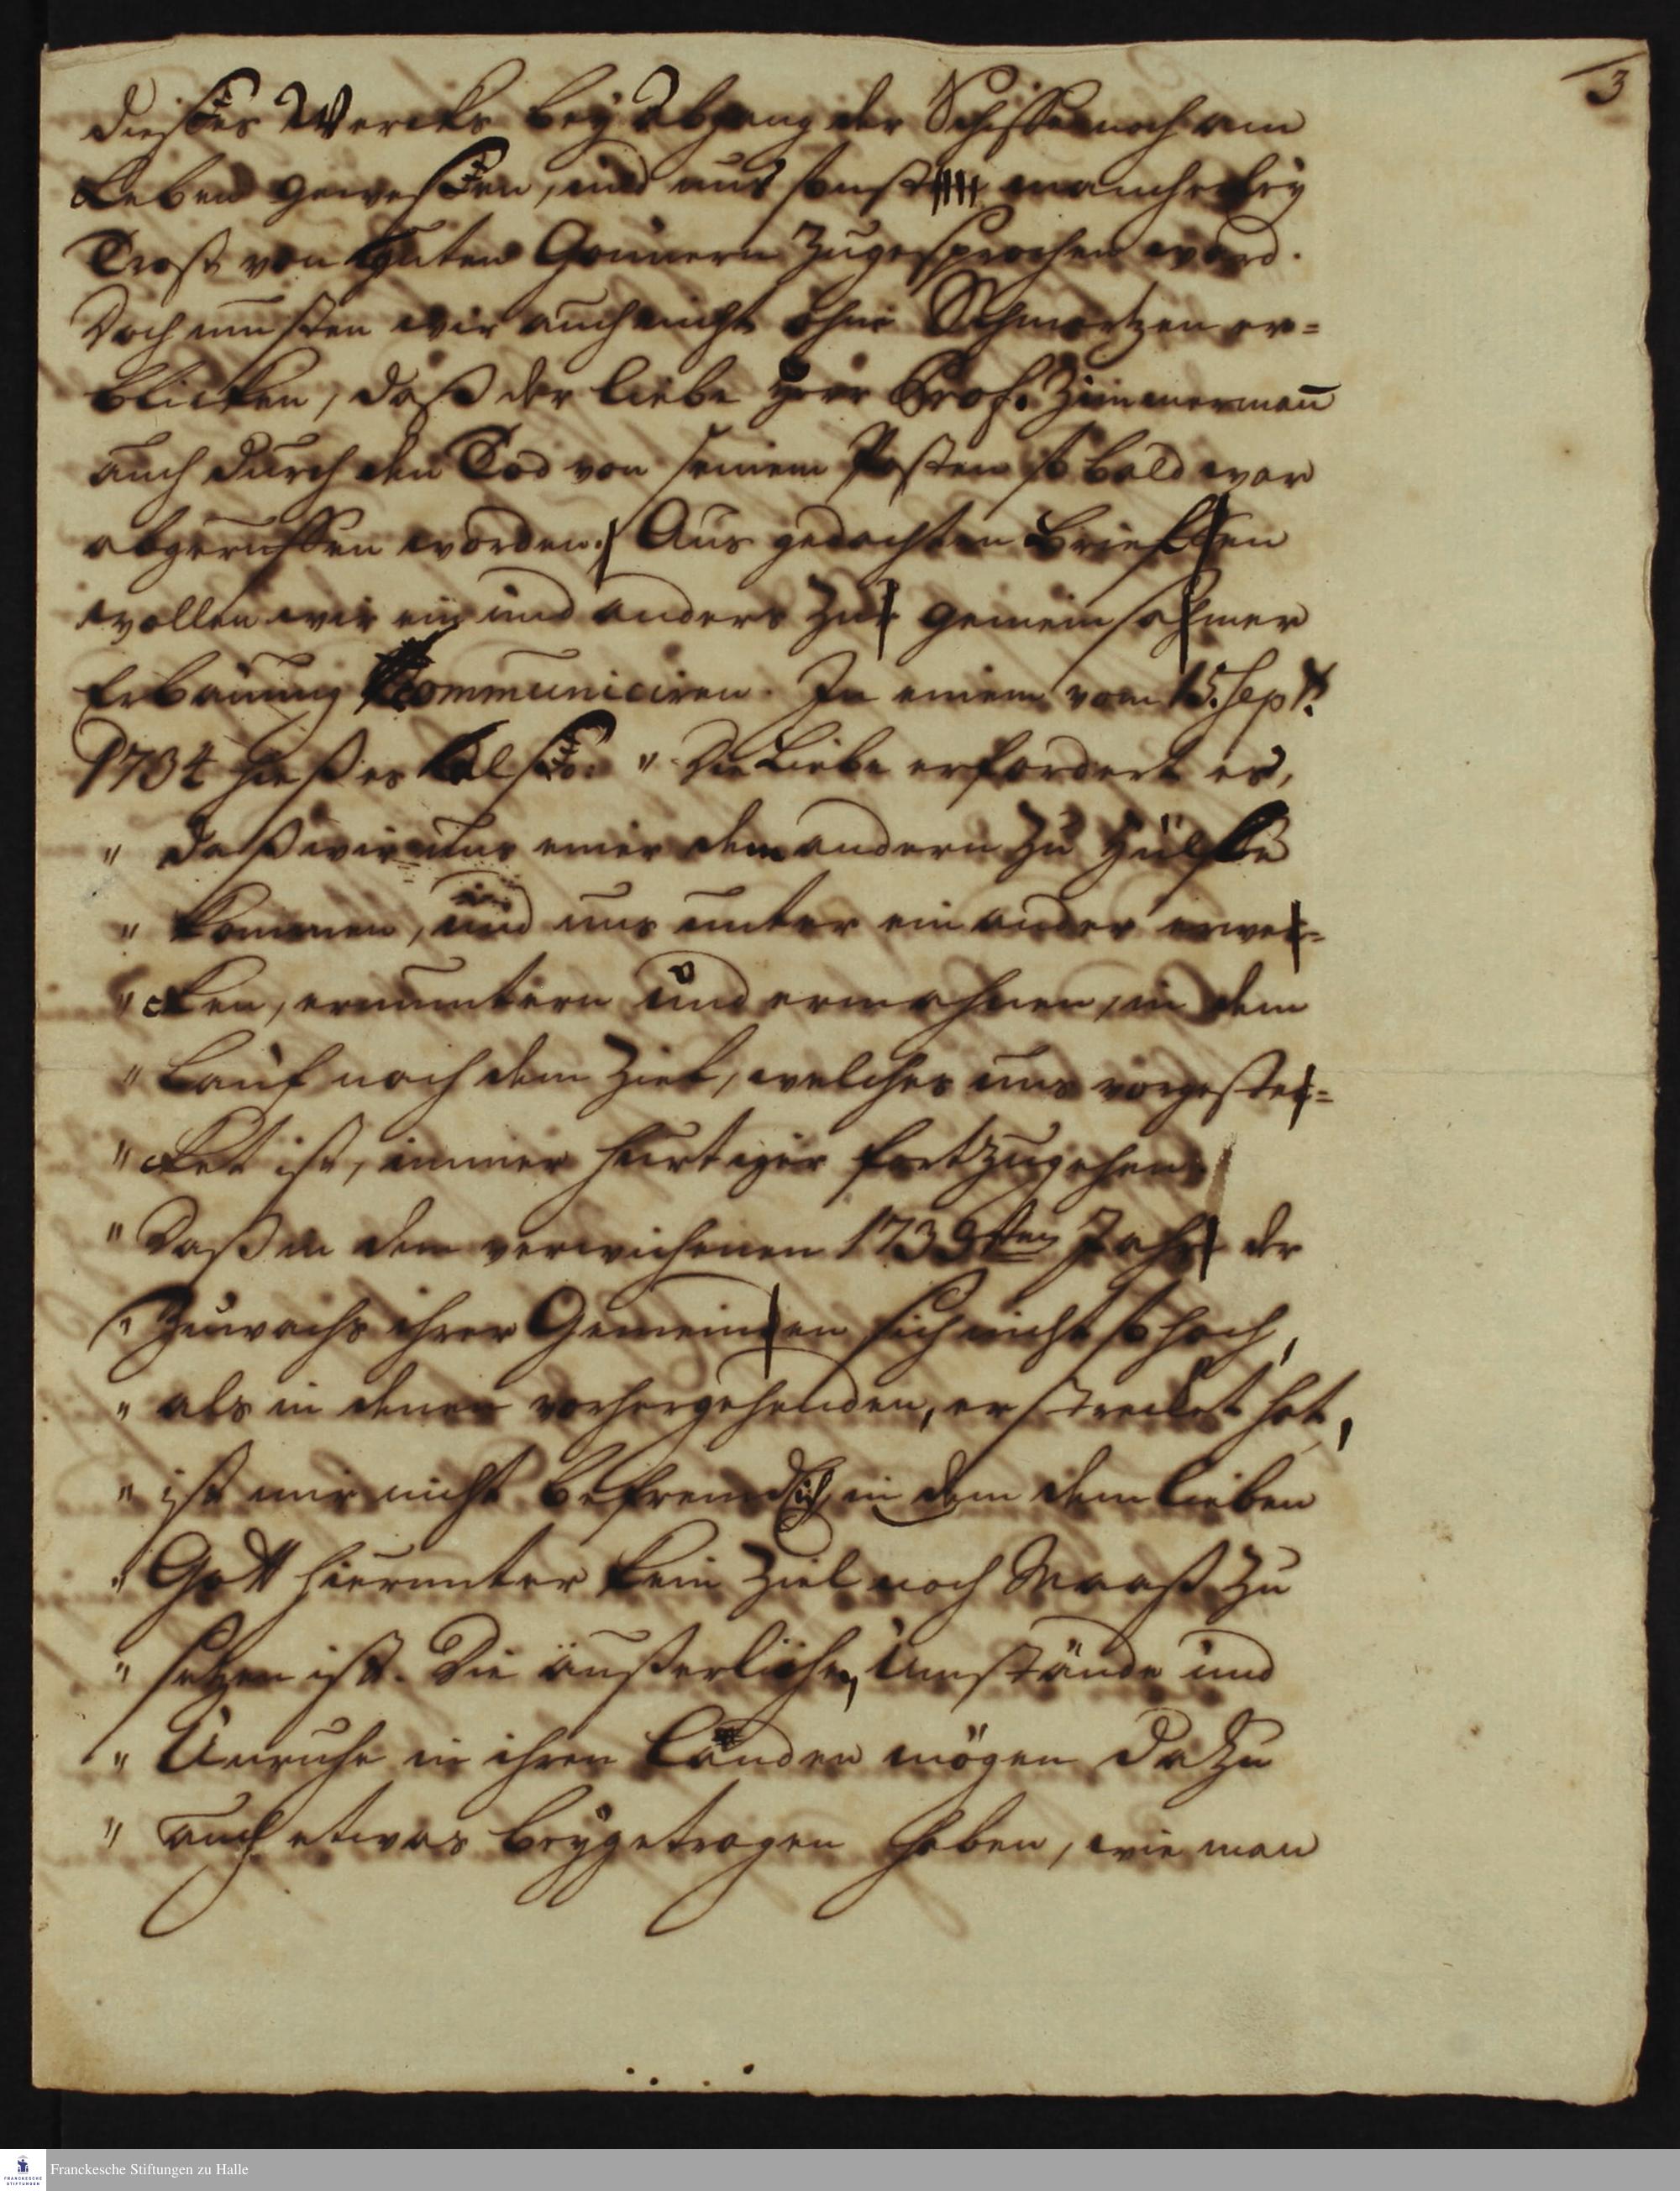 3
dieses Wercks bey Abgang der Schiffe noch am
Leben gewesen, und uns sonst mancherley
Trost von guten Gönnern zugesprochen ward.
Doch musten wir auch nicht ohne Schmertzen er=
blicken, daß der liebe Herr Prof. Zimmermañ
auch durch den Tod von seinem Posten so bald war
abgeruffen worden. Aus gedachten Brieffen
wollen wir ein und anders zur gemeinsahmer
Erbauung Communiciren. In einem vom 15. Sept.
1734 hieß es also: " Die Liebe erfordert es,
" daß wir uns einer dem andern zu Hülffe
" kommen, und uns unter einander erwe=
" cken, ermuntern und ermahnen, in dem
" Lauf nach dem Ziel, welches uns vorgeste=
" cket ist, immer hurtiger fortzugehen.
" Daß in dem verwichenen 1733sten Jahr der
" Zuwachs ihrer Gemeinen sich nicht so hoch,
" als in denen vorhergehenden, erstrecket hat,
" ist mir nicht befremdlich, in dem dem lieben
" Gott hierunter kein Ziel noch Maaß zu
" setzen ist. Die äußerliche, Umstände und
" Unruhe in ihren Landen mögen dazu
" auch etwas beygetragen haben, wie man
Franckesche Stiftungen zu Halle
FRANCKESCHE
STIFTUNGEN